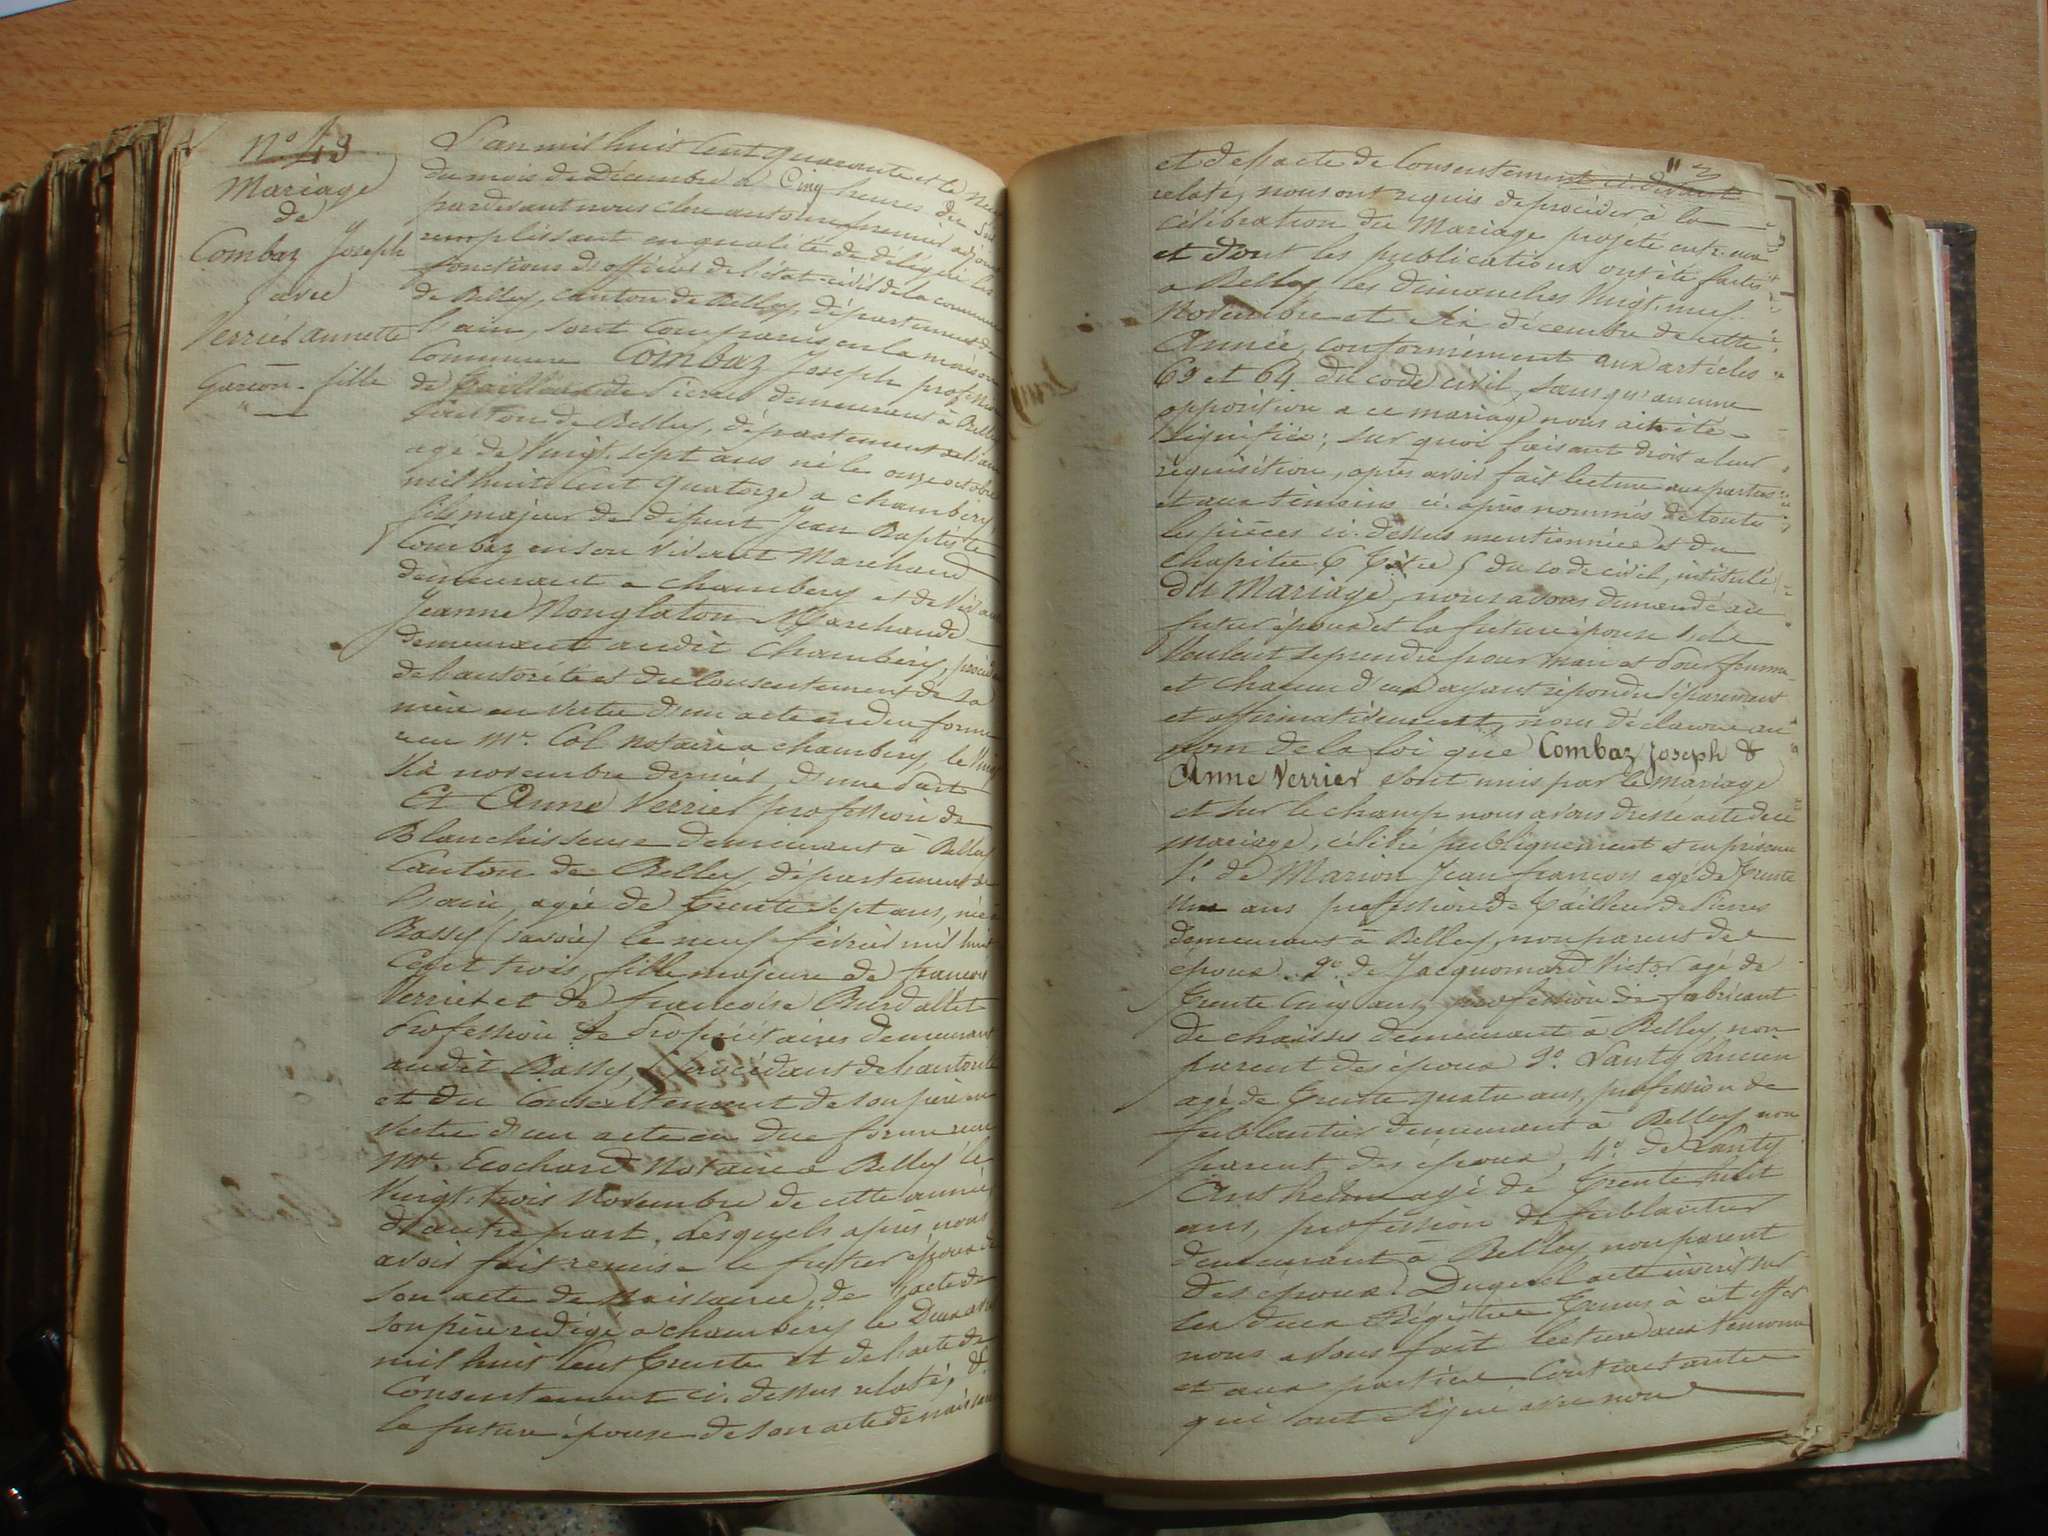 N° 43
Mariage
de
Combaz Joseph
avec
Verrier annette
Garçon - fille
L'an mil huit cent quarante et le neuf
du mois de Décembre à Cinq heures du Soir
pardevant nous clerc antoine premier adjoint
remplissant en qualité de délégué les
fonctions d'officier de l'état-civil de la commune
de Belley, canton de Belley, département de
l'ain, sont comparus en la maison
Commune Combaz Joseph profession
de Tailleur de Pierres demeurant à Belley
Canton de Belley, département de l'ain
agé de Vingt-sept ans né le onze octobre
mil huit Cent quatorze a chambéry
fils majeur de défunt Jean Baptiste
Combaz en son vivant Marchand
demeurant a chambery et de vivante
Jeanne Monglaton Marchande
demeurant audit Chambéry, procédant
de l'autorité et du Consentement de sa
mère en vertu d'un acte en due forme
reçu Mr. Col notaire a chambéry, le Vingt
six novembre dernier, d'une part
Et Anne Verrier profession de
Blanchisseuse demeurant à Belley
Canton de Belley, département de
l'ain, agée de trente sept ans, née à
Bassy (Savoie) le neuf février mil huit
Cent trois, fille majeure de françois
Verrier et de françoise Burdallet
Profession de Propriétaires demeurant
audit Bassy, procédant de l'autorité
et du Consentement de son père en
vertu d'un acte en due forme reçu
Mr. Ecochard Notaire a Belley le
Vingt trois Novembre de cette année
d'autre part. Lesquels après nous
avoir fait remise le futur époux de
son acte de Naissance, de l'acte de
son père redigé a chambéry le Deux
mil huit Cent trente et de l'acte de
Consentement ci-dessus relaté, &
la future épouse de son acte de naissance
113
et de l'acte de Consentement ci-devant
relaté, nous ont requis de procéder à la
célébration du Mariage projeté entr'eux
et dont les publications ont été faites
a Belley, les dimanches Vingt-neuf
Novembre et Six décembre de cette
Année, conformément aux articles
63 et 64 du code civil, sans qu'aucune
opposition a ce mariage nous ait été
signifiée; sur quoi faisant droit a leur
réquisition, après avoir fait lecture aux parties
et aux témoins ci-après nommés de toutes
les pièces ci-dessus mentionnées et du
chapitre 6 Titre 5 du code civil, intitulé
Du Mariage, nous avons demandé au
futur époux et la future épouse s'ils
Veulent se prendre pour mari et pour femme
et chacun d'eux ayant répondu séparément
et affirmativement, nous déclarons au
nom de la loi que Combaz Joseph &
Anne Verrier sont unis par le Mariage
et sur le champ nous avons dressé acte de ce
mariage, célébré publiquement et en présence
1° de Marion Jean françois agé de Trente
un ans profession de Tailleur de Pierres
demeurant à Belley, non parent des
époux. 2° de Jacquomard Victor agé de
Trente Cinq ans, profession de fabricant
de chaises demeurant à Belley, non
parent des époux 3°. Lanty Lucien
agé de Trente quatre ans, profession de
ferblantier demeurant à Belley non
parent des époux, 4° de Lanty
Anthelme agé de Trente huit
ans, profession de ferblantier
demeurant à Belley, non parent
des époux. Duquel acte inscrit sur
les deux Régistres tenus à cet effet
nous avons fait lecture aux témoins
et aux parties Contractantes
qui ont signé avec nous